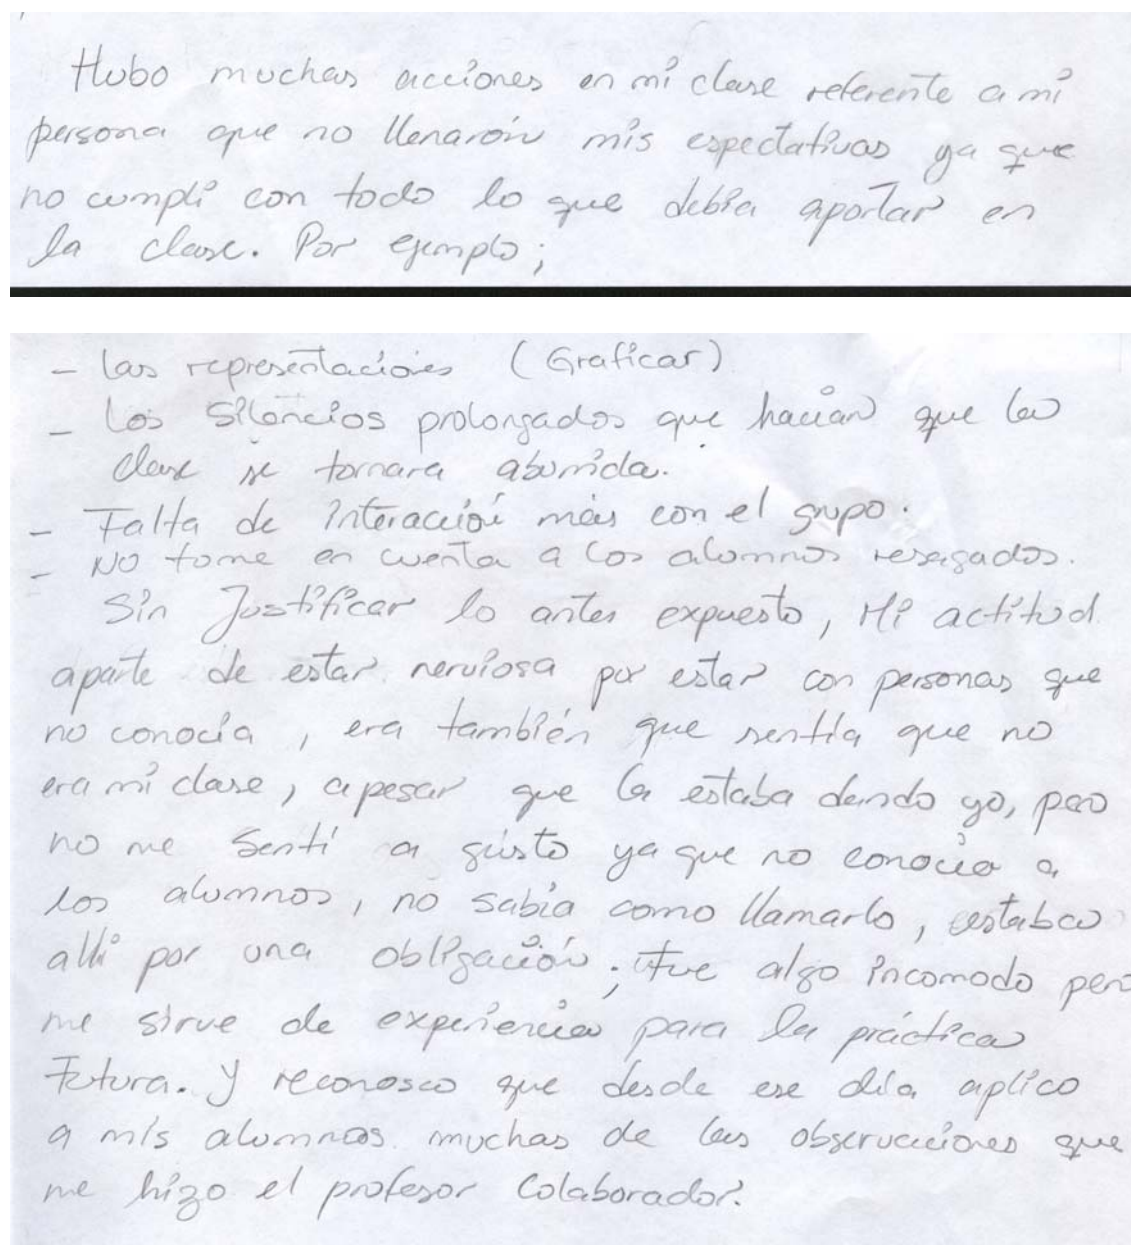 Hubo muchas acciones en mi clase referente a mi
persona que no llenarón mis espectativas ya que
no cumpli con todo lo que debia aportar en
la clase. Por ejemplo;
- las representaciones (Graficar)
- Los Silencios prolongados que hacian que la
clase se tornara aburrida.
- Falta de interacción más con el grupo.
- No tome en cuenta a los alumnos resagados.
Sin Justificar lo antes expuesto, Mi actitud
aparte de estar nerviosa por estar con personas que
no conocía, era también que sentía que no
era mi clase, apesar que la estaba dando yo, pero
no me Sentí a gusto ya que no conocia a
los alumnos, no sabia como llamarlo, estaba
alli por una obligación; Fue algo incomodo pero
me sirve de experiencia para la práctica
Futura. Y reconosco que desde ese día aplico
a mis alumnos muchas de las observaciones que
me hizo el profesor Colaborador.